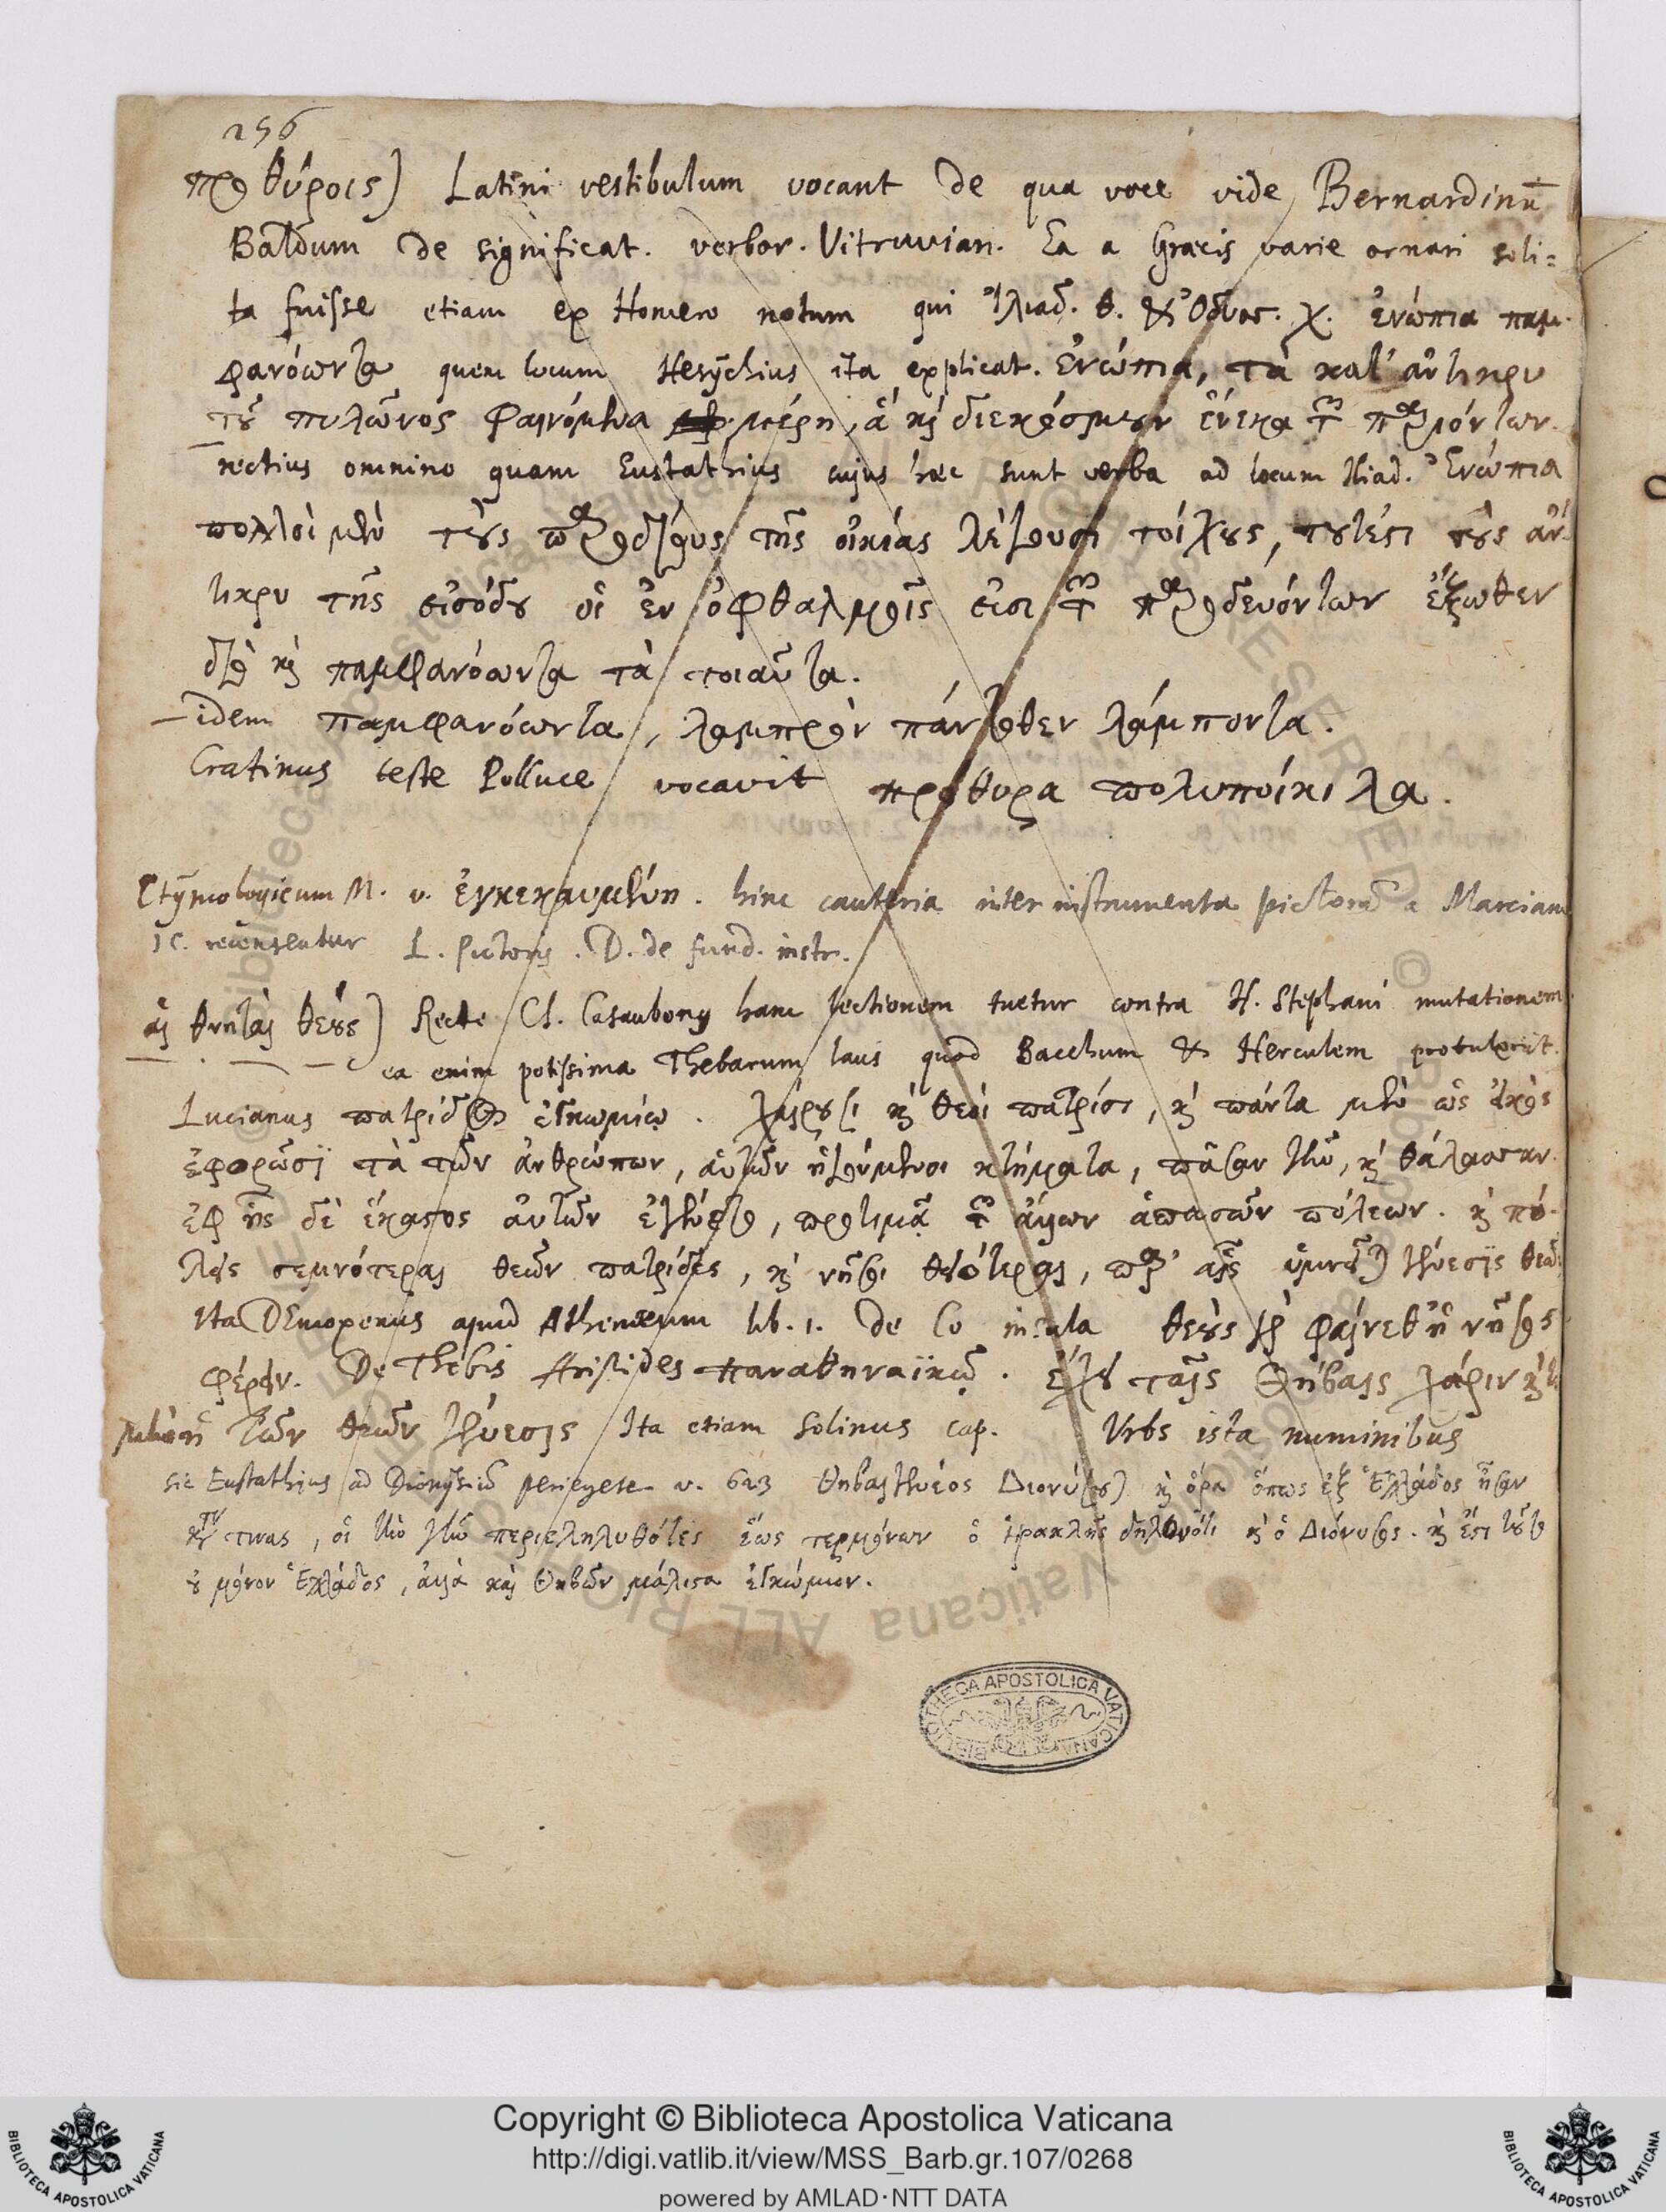 256
προθύροις) Latini vestibulum vocant de qua voce vide Bernardinū
Baldum de significat. verbor. Vitruvian. Ea a Græcis varie ornari soli=
ta fuisse etiam ex Homero notum qui Ἰλιαδ. θ. & Ὀδυσ. χ. ἐνώπια παμ-
φανόωντα quem locum Hesychius ita explicat. Ἐνώπια, τὰ κατ' ἀντικρυ
τοῦ πυλῶνος φαινόμενα μέρη, ἃ καὶ διεκόσμουν ἕνεκα τῶν παριόντων.
rectius omnino quam Eustathius cujus hæc sunt verba ad locum Iliad. Ἐνώπια
πολλοὶ μὲν τοὺς παροδίους τῆς οἰκίας λέγουσι τοίχους, τουτέστι τοὺς ἀν-
τικρυ τῆς εἰσόδου οἳ ἐν ὀφθαλμοῖς εἰσι τῶν παροδευόντων ἔξωθεν
διὸ καὶ παμφανόωντα τὰ τοιαῦτα.
idem παμφανόωντα, λαμπρὸν πάντοθεν λάμποντα.
Cratinus teste Polluce vocavit πρόθυρα πολυποίκιλα.
Etymologicum M. v. ἐγκεκαυμένη. hinc cauteria inter instrumenta pictorū a Marciano
IC. recensentur L. Pictoris. D. de fund. instr.
αἱ θνητὰς θεοὺς) Recte Cl. Casaubonus hanc lectionem tuetur contra H. Stephani mutationem.
ea enim potissima Thebarum laus quod Bacchum & Herculem protulerit.
Lucianus πατρίδος ἐγκωμίῳ. χαίρουσι καὶ θεοὶ πατρίσι, καὶ πάντα μὲν ὡς εἰκὸς
ἐφορῶσι τὰ τῶν ἀνθρώπων, αὐτῶν ἡγούμενοι κτήματα, πᾶσαν γῆν, καὶ θάλασσαν.
ἐφ ἧς δὲ ἕκαστος αὐτῶν ἐγένετο, προτιμᾷ τῶν ἄλλων ἁπασῶν πόλεων. καὶ πό-
λεις σεμνότεραι θεῶν πατρίδες, καὶ νῆσοι θειότεραι, παρ' αἷς ὑμνεῖται γένεσις θεῶν
Ita Demoxenus apud Athenæum lib. 1. de Co insula θεοὺς γὰρ φαίνεθ' ἡ νῆσος
φέρειν. De Thebis Aristides παναθηναϊκῷ. ἔχει ταῖς Θήβαις χάριν καὶ
μόνη τῶν θεῶν γένεσις Ita etiam Solinus cap. Vrbs ista numinibus
sic Eustathius ad Dionysiū periegete. v. 623 Θηβαιγενέος Διονύσου) καὶ ὅρα ὅπως ἐξ Ἑλλάδος ἦσαν
κατὰ τινας, οἱ τὴν γῆν περιεληλυθότες ἕως τερμόνων ὁ Ἡρακλῆς δηλονότι καὶ ὁ Διόνυσος. καὶ ἔστι τοῦτο
οὐ μόνον Ἑλλάδος, ἀλλὰ καὶ Θηβῶν μάλιστα ἐγκώμιον.
BIBLIOTHECA APOSTOLICA VATICANA
Copyright © Biblioteca Apostolica Vaticana
http://digi.vatlib.it/view/MSS_Barb.gr.107/0268
powered by AMLAD·NTT DATA
BIBLIOTECA APOSTOLICA VATICANA
BIBLIOTECA APOSTOLICA VATICANA